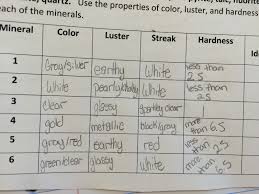 quartz. Use the properties of color, luster, and hardness
each of the minerals.
Mineral Color Luster Streak Hardness
1 Gray/silver earthy white less than 2.5
2 white pearly/chalky white less than 2.5
3 clear glassy clear
4 gold metallic black/gray more than 6.5
5 gray/red earthy red less than 2.5
6 green/clear glassy white more than 6.5